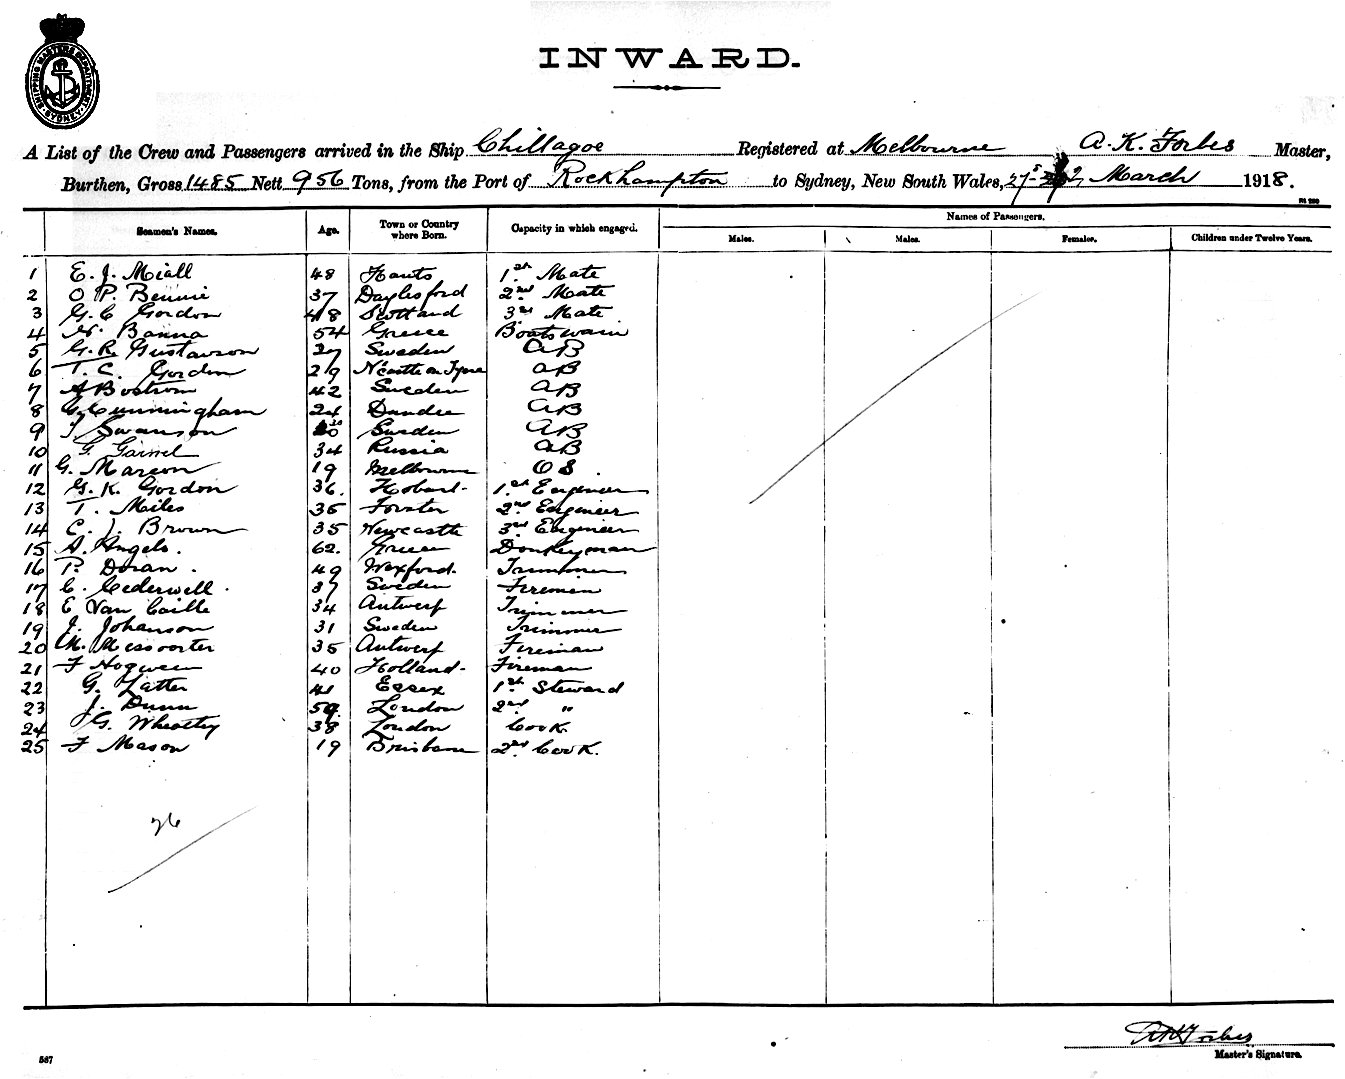 SHIPPING MASTERS DEPARTMENT. SYDNEY.
INWARD.
A List of the Crew and Passengers arrived in the Ship Chillagoe Registered at Melbourne A. K. Forbes Master,
Burthen, Gross 1485 Nett 956 Tons, from the Port of Rockhampton to Sydney, New South Wales, 27 March 1918.
Names of Passengers.
Seamen's Names. Age. Town or Country where Born. Capacity in which engaged. Males. Males. Females. Children under Twelve Years.
1 E. J. Miall 48 Hants 1st Mate
2 O P. Bennie 37 Daylesford 2nd Mate
3 G. C Gordon 48 Scotland 3rd Mate
4 N. Banna 54 Greece Boatswain
5 G. R. Gustavson 27 Sweden AB
6 T. C. Gordon 29 N'castle on Tyne AB
7 A Bostrom 42 Sweden AB
8 G. Cunningham 24 Dundee AB
9 Swanson Sweden AB
10 G. 34 Russia AB
11 G. Marcon 19 Melbourne OS
12 G. K. Gordon 36. Hobart 1st Engineer
13 T. Miles 35 Forster 2nd Engineer
14 C. J. Brown 35 Newcastle 3rd Engineer
15 A. Angelo. 62. Greece Donkeyman
16 P. Doran 49 Wexford. Trimmer
17 C. Cederwell 37 Sweden Firemen
18 E Van Caille 34 Antwerp Trimmer
19 J. Johanson 31 Sweden Trimmer
20 M. Messorter 35 Antwerp Fireman
21 F Hogween 40 Holland Fireman
22 G. Latter 41 Essex 1st Steward
23 J. Dunn 59. London 2nd "
24 J G. Wheatley 38 London Cook.
25 F Mason 19 Brisbane 2nd Cook.
26
A K Forbes
Master's Signature.
567